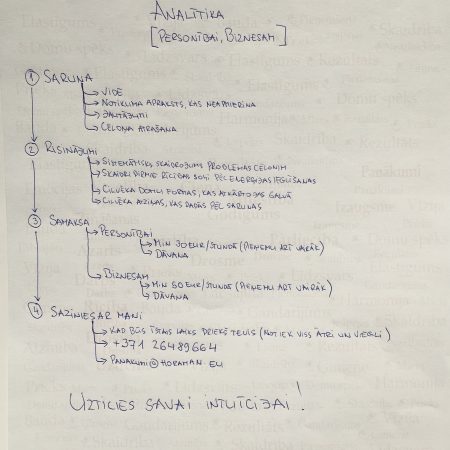 ANALĪTIKA
[PERSONĪBAI, BIZNESAM]
1 SARUNA
VIDE
NOTIKUMA APRAKSTS, KAS NEAPMIERINA
JAUTĀJUMI
CĒLOŅA ATRAŠANA
2 RISINĀJUMI
SISTEMĀTISKS, SKAIDROJUMS PROBLĒMAS CĒLONIM
SKAIDRI PIRMIE RĪCĪBAS SOĻI PĒC ENERĢIJAS IEGŪŠANAS
CILVĒKA DOMU FORMAS, KAS ATKĀRTOJAS GALVĀ
CILVĒKA ATZIŅAS, KAS RADĀS PĒC SARUNAS
3 SAMAKSA
PERSONĪBAI
MIN 30 EUR/STUNDĀ (PIEŅEMU ARĪ VAIRĀK)
DĀVANA
BIZNESAM
MIN 50 EUR/STUNDĀ (PIEŅEMU ARĪ VAIRĀK)
DĀVANA
4 SAZINIES AR MANI
KAD BŪS ĪSTAIS LAIKS PRIEKŠ TEVIS (NOTIEK VISS ĀTRI UN VIEGLI)
+371 26489664
PANAKUMI@HORAMAN.EU
UZTICIES SAVAI INTUĪCIJAI!